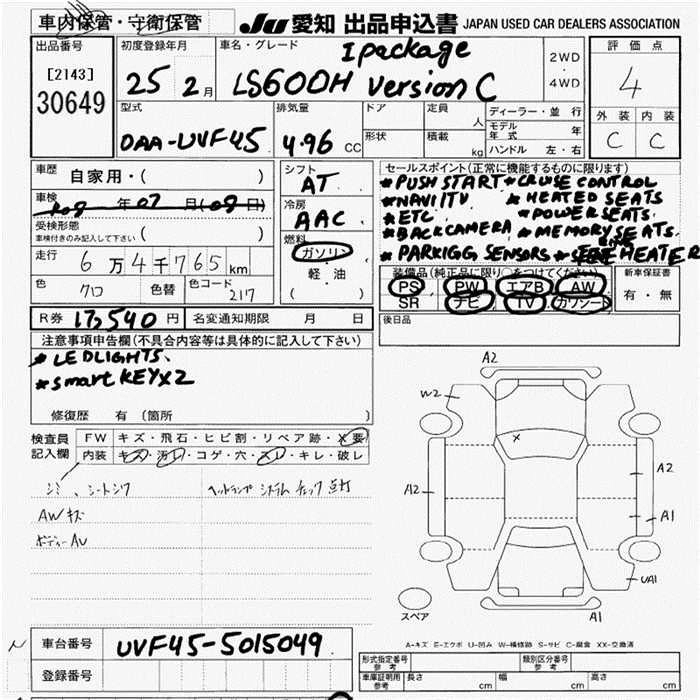 車内保管・守衛保管 JU 愛知 出品申込書 JAPAN USED CAR DEALERS ASSOCIATION
出品番号 初度登録年月 車名・グレード I package 2WD 評価点
[2143] 25 2月 LS600H version C ・ 4
30649 4WD 外装 内装
型式 排気量 ドア 定員 人 ディーラー・並行 C C
DAA-UVF45 4.96 CC 形状 積載 kg モデル年式 年
ハンドル 左・右
車歴 自家用・( ) シフト AT セールスポイント(正常に機能するものに限ります)
車検 R08年07月(08日) 冷房 AAC *PUSH START *CRUSE CONTROL
受検形態 ( ) *NAVI/TV *HEATED SEATS
車検付きのみ記入して下さい 燃料 *ETC *POWER SEATS.
走行 6万4千765km ガソリン *BACK CAMERA *MEMORY SEATS.
色 クロ 色替 色コード 217 軽・油 *PARKIGG SENSORS HEATER
( ) 装備品(純正品に限り〇をつけてください) 新車保証書
PS PW エアB AW 有・無
SR ナビ TV カワシート
R券 17,540円 名変通知期限 月 日 後日品
注意事項申告欄(不具合内容等は具体的に記入して下さい)
*LEDLIGHTS、
*smart KEYX2
修復歴 有(箇所
検査員 FW キズ・飛石・ヒビ割・リペア跡・X要
記入欄 内装 キズ・汚レ・コゲ・穴・スレ・キレ・破レ
シミ、シートシワ ヘッドランプ システム チェック 点灯
AWキズ
ボディーAU
A2
W2
A12
A2
A1
UA1
A1
スペア
A-キズ E-エクボ U-凹み W-補修跡 S-サビ C-腐食 XX-交換済
車台番号 UVF45-5015049
登録番号
形式指定番号 参考 類別区分番号 参考
車庫証明用 参考 長さ cm 幅 cm 高さ cm